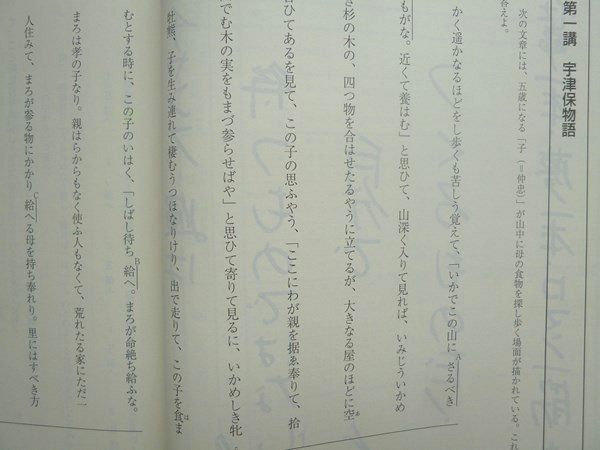 第一講　宇津保物語
次の文章には、五歳になる「子（＝仲忠）」が山中に母の食物を探し歩く場面が描かれている。これ
答えよ。
かく遥かなるほどをし歩くも苦しう覚えて、「いかでこの山にAさるべき
もがな。近くて養はむ」と思ひて、山深く入りて見れば、いみじういかめ
き杉の木の、四つ物を合はせたるやうに立てるが、大きなる屋のほどに空あ
ひてあるを見て、この子の思ふやう、「ここにわが親を据ゑ奉りて、拾
でむ木の実をもまづ参らせばや」と思ひて寄りて見るに、いかめしき牝
牡熊、子を生み連れて棲むうつほなりけり、出で走りて、この子を食はま
むとする時に、この子のいはく、「しばし待ちB給へ。まろが命絶ち給ふな。
まろは孝の子なり。親はらからもなく使ふ人もなくて、荒れたる家にただ一
人住みて、まろが参る物にかかりC給へる母を持ち奉れり。里にはすべき方